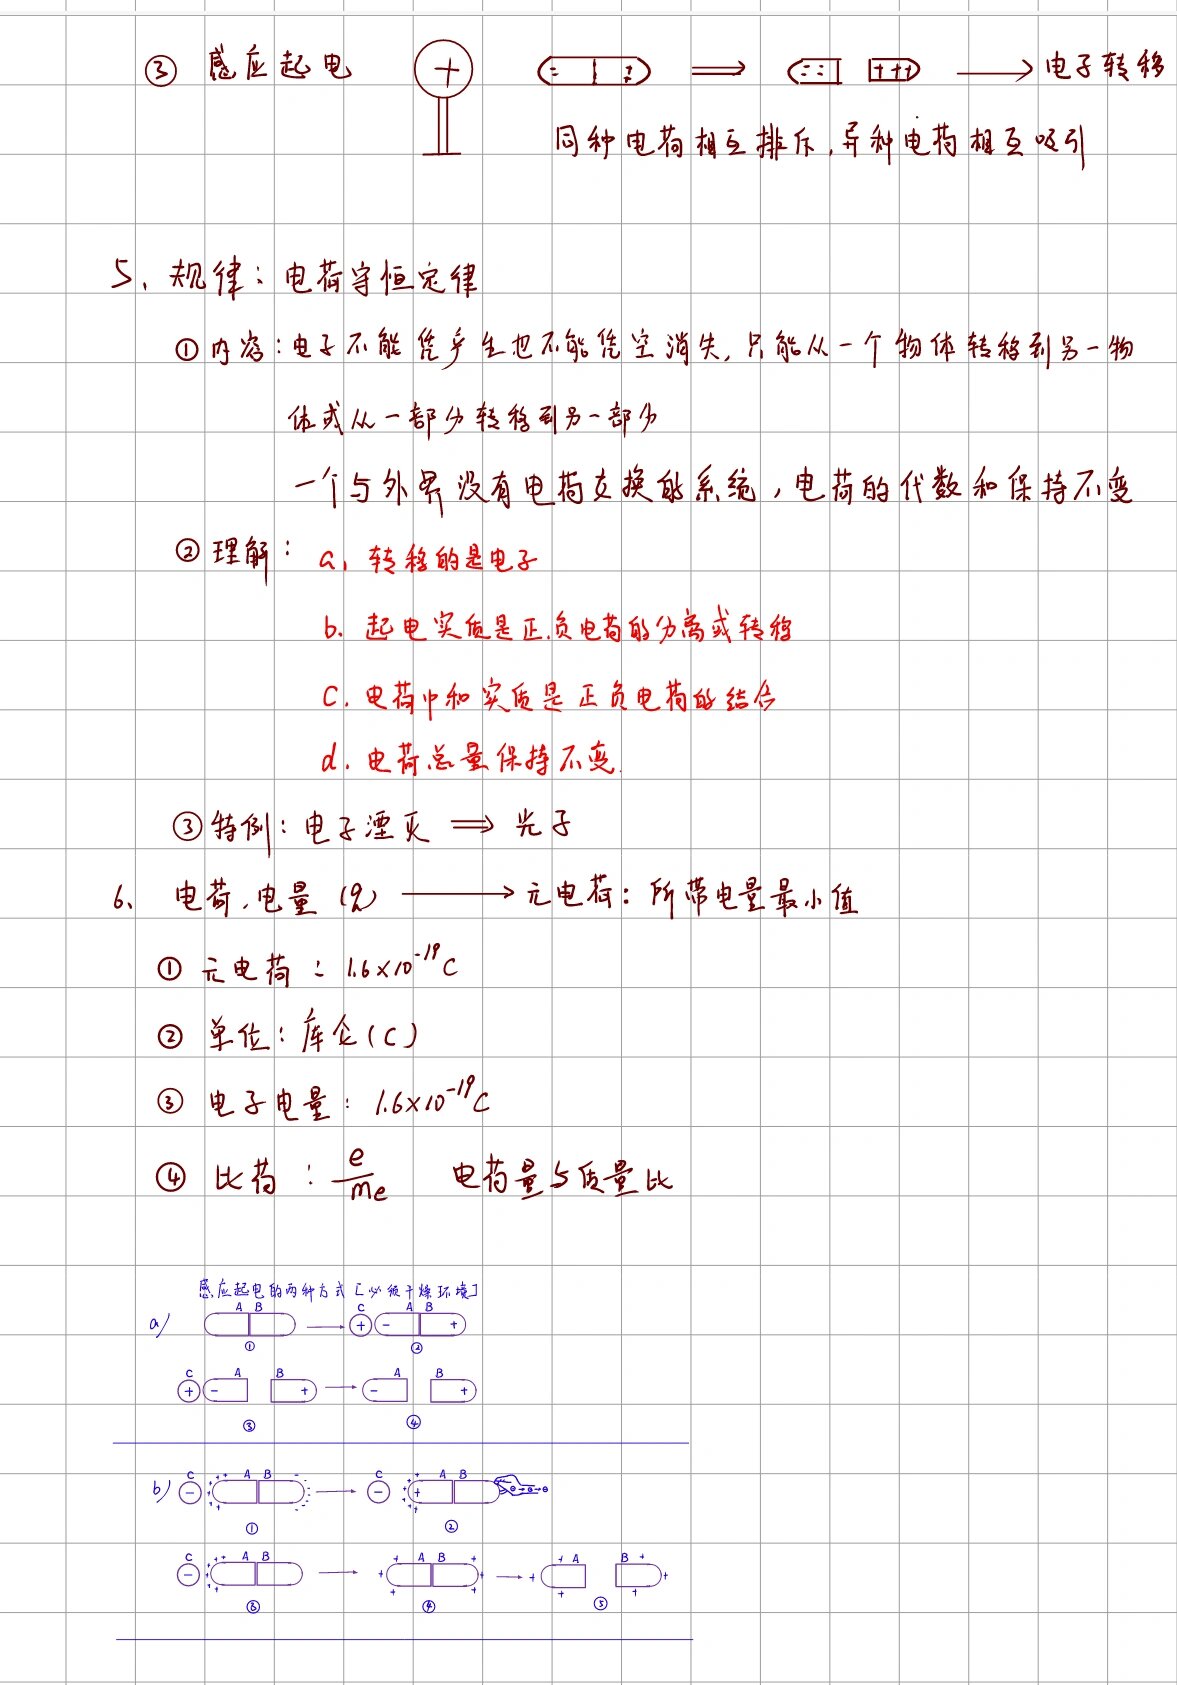 ③ 感应起电 + - - + ⟹ - - - - +++ → 电子转移
同种电荷相互排斥,异种电荷相互吸引
5、规律:电荷守恒定律
①内容:电子不能凭产生也不能凭空消失,只能从一个物体转移到另一物
体或从一部分转移到另一部分
一个与外界没有电荷交换的系统,电荷的代数和保持不变
②理解: a、转移的是电子
b. 起电实质是正.负电荷的分离或转移
c. 电荷中和实质是正负电荷的结合
d. 电荷总量保持不变.
③特例:电子湮灭 ⟹ 光子
6、 电荷.电量 (q) → 元电荷:所带电量最小值
① 元电荷:1.6×10⁻¹⁹C
② 单位:库仑(C)
③ 电子电量:1.6×10⁻¹⁹C
④ 比荷:e/me 电荷量与质量比
感应起电的两种方式[必须干燥环境]
a) A B → C A B
+ - +
① ②
C A B → A B
+ - + - +
③ ④
b) C A B → C A B
- + + + - - - + + ⊖→⊖→⊖
① ②
C A B → A B → A B
- + + + + + + + + + +
③ ④ ⑤